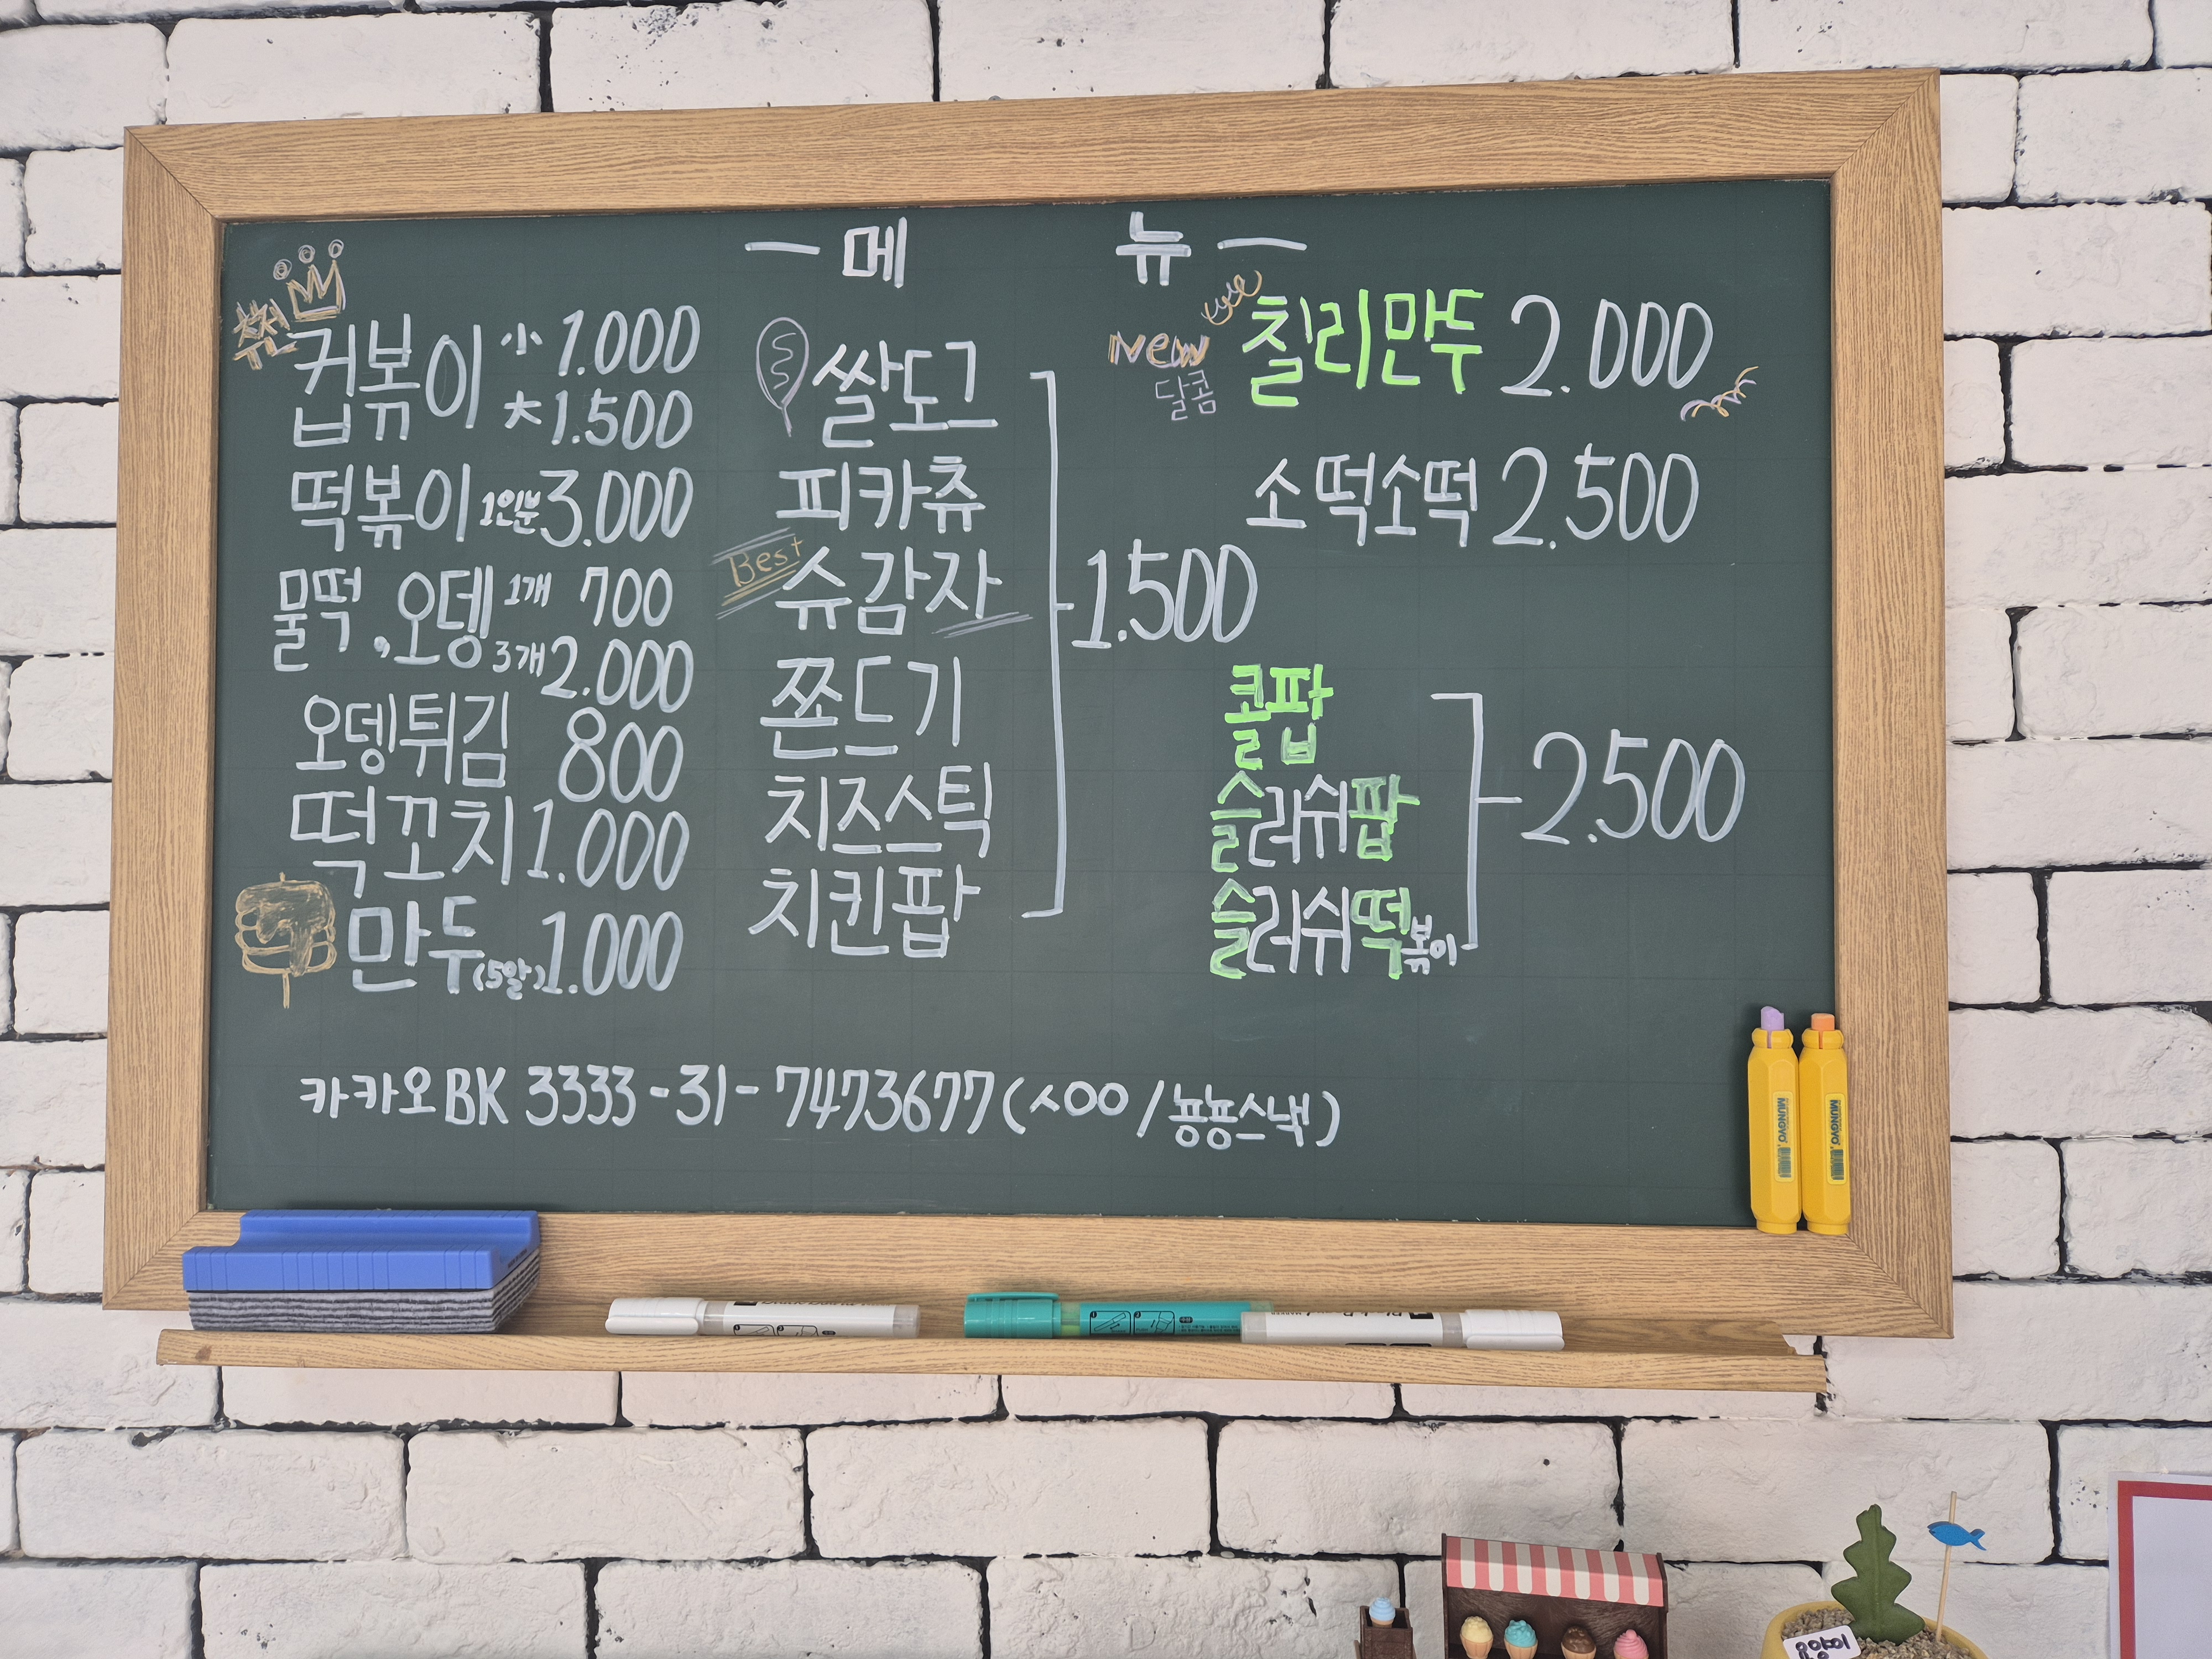 - 메 뉴 -
추천
컵볶이 小 1.000
大 1.500
떡볶이 1인분 3.000
물떡, 오뎅 1개 700
3개 2.000
오뎅튀김 800
떡꼬치 1.000
만두(5알) 1.000
쌀도그
피카츄
Best 슈감자
쫀드기
치즈스틱
치킨팝
1.500
New 달콤 칠리만두 2.000
소떡소떡 2.500
콜팝
슬러쉬팝
슬러쉬떡볶이
2.500
카카오BK 3333-31-7473677(ㅅㅇㅇ/뇽뇽스낵)
MUNGYO
MUNGYO